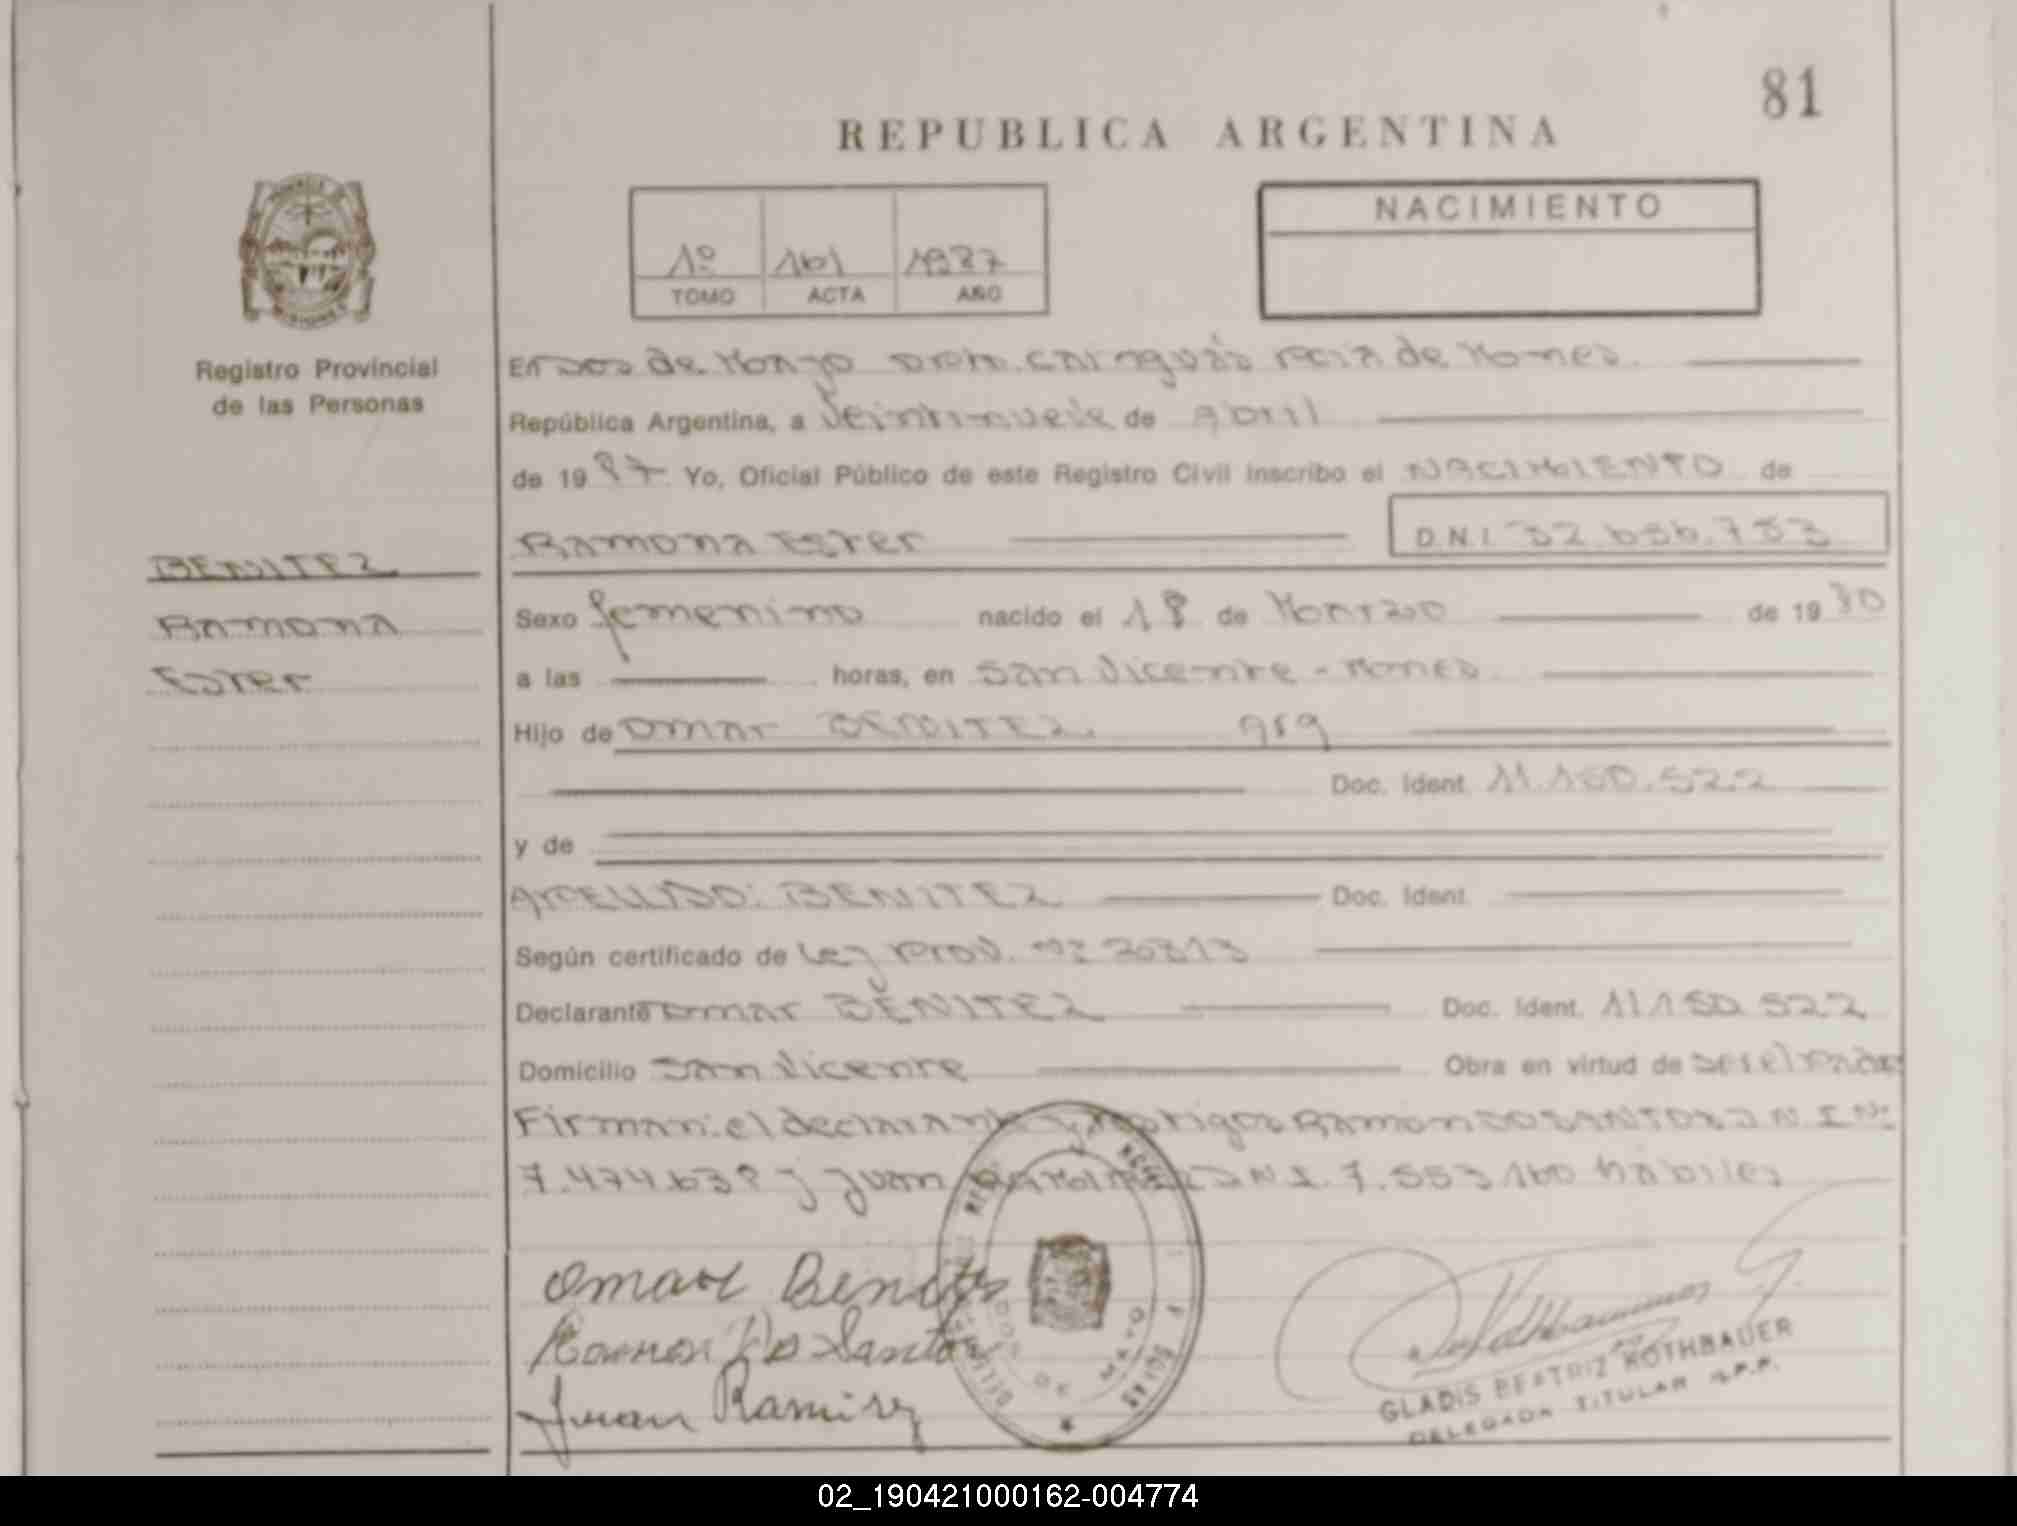 81
REPUBLICA ARGENTINA
NACIMIENTO
1º 161 1987
TOMO ACTA AÑO
Registro Provincial
de las Personas
En Dos de Mayo Dpto. Cainguás de Mones.
República Argentina, a Veintinueve de Abril
de 1987 Yo, Oficial Público de este Registro Civil inscribo el NACIMIENTO de
Ramona Ester D.N.I. 32.656.753
BENITEZ
Ramona
Ester
Sexo femenino nacido el 18 de Marzo de 1980
a las horas, en San Vicente - Mones
Hijo de Omar BENITEZ. arg
Doc. Ident. 11.150.522
y de
APELLIDO: BENITEZ Doc. Ident.
Según certificado de Ley Prov. Nº
Declarante Omar BENITEZ Doc. Ident. 11.150.522
Domicilio San Vicente Obra en virtud de
Firman: el declarante y testigos Ramon DO SANTOS D.N.I. Nº
7.474.638 y Juan D.N.I. 7.553.160 hábiles
Omar Benitez
Ramon Do Santos
Juan Ramirez
DOS DE MAYO
GLADIS BEATRIZ ROTHBAUER
DELEGADA TITULAR R.P.P.
02_190421000162-004774